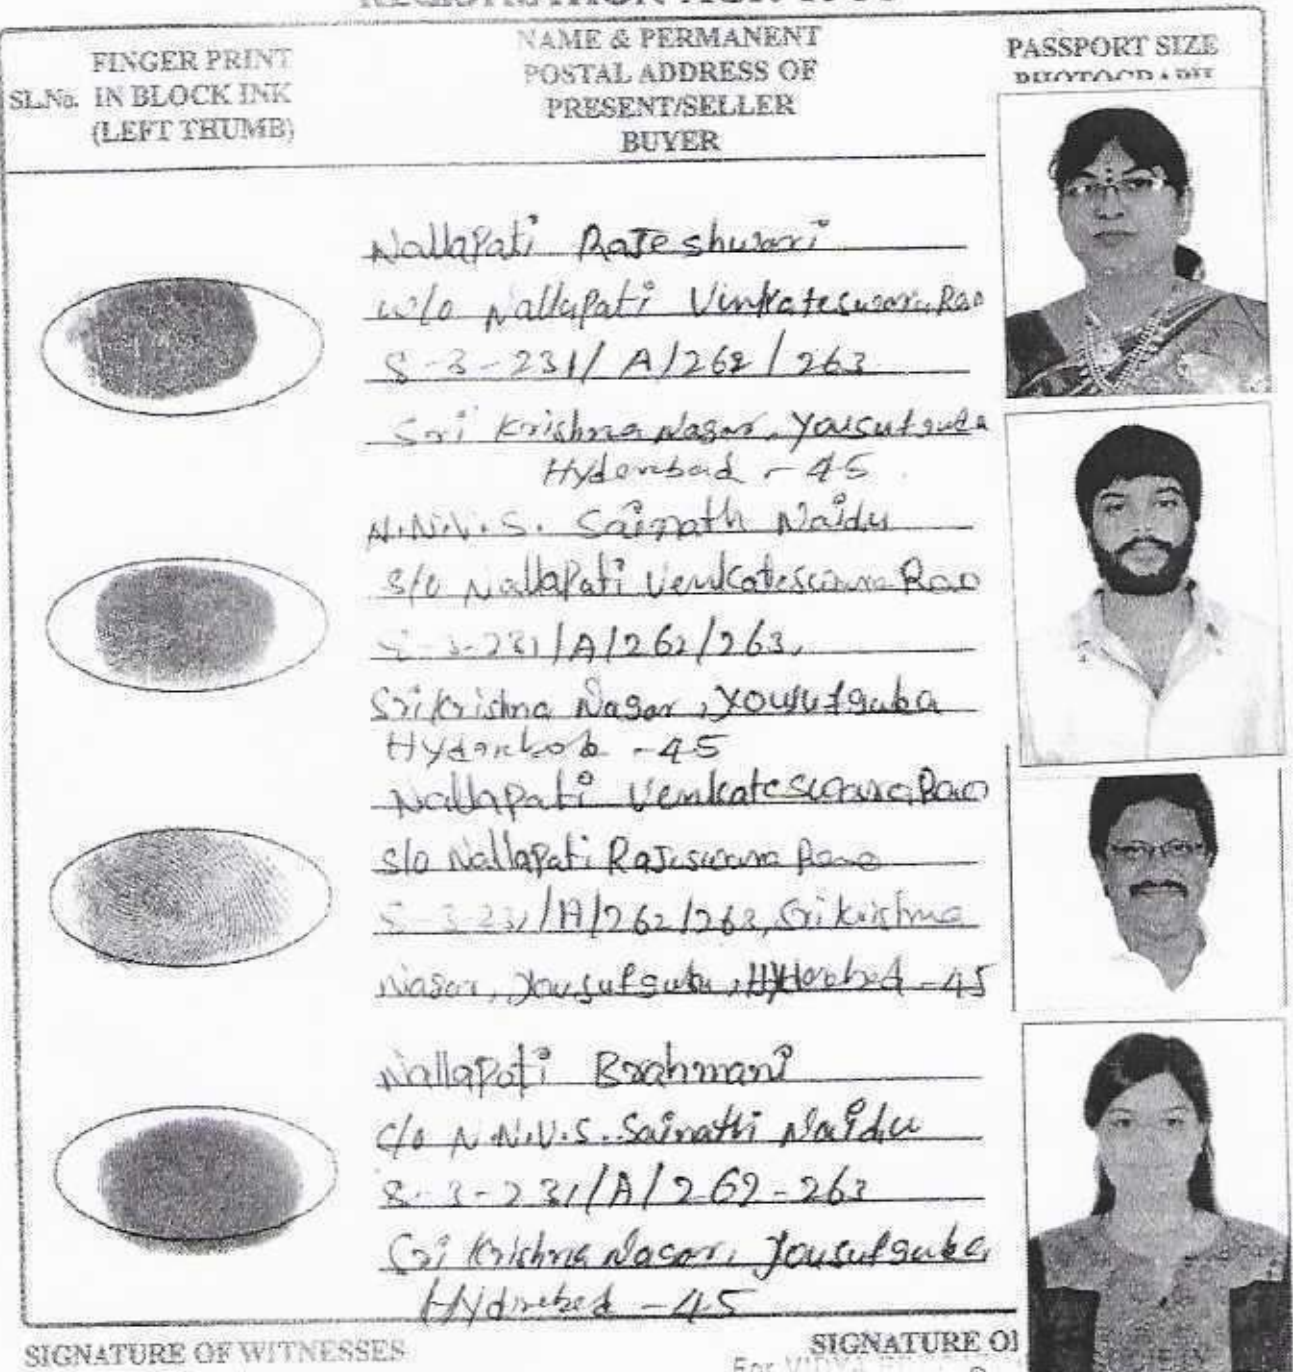 REGISTRATION ACT. 1908
SL.No.
FINGER PRINT
IN BLOCK INK
(LEFT THUMB)
NAME & PERMANENT
POSTAL ADDRESS OF
PRESENT/SELLER
BUYER
PASSPORT SIZE
PHOTOGRAPH
Nallapati Rajeshwari
W/o Nallapati Vinkateswara Rao
8-3-231/A/262/263
Sri Krishna Nagar, Yousufguda
Hyderabad - 45
N.N.V.S. Sainath Naidu
S/o Nallapati Venkateswara Rao
8-3-231/A/262/263,
Sri Krishna Nagar, Yousufguba
Hyderabad - 45
Nallapati Venkateswara Rao
S/o Nallapati Rajeswara Rao
8-3-231/A/262/263, Sri Krishna
Nagar, Yousufguba, Hyderabad - 45
Nallapati Brahmani
C/o N.N.V.S. Sainath Naidu
8-3-231/A/262-263
Sri Krishna Nagar, Yousufguba,
Hyderabad - 45
SIGNATURE OF WITNESSES
SIGNATURE OF
For